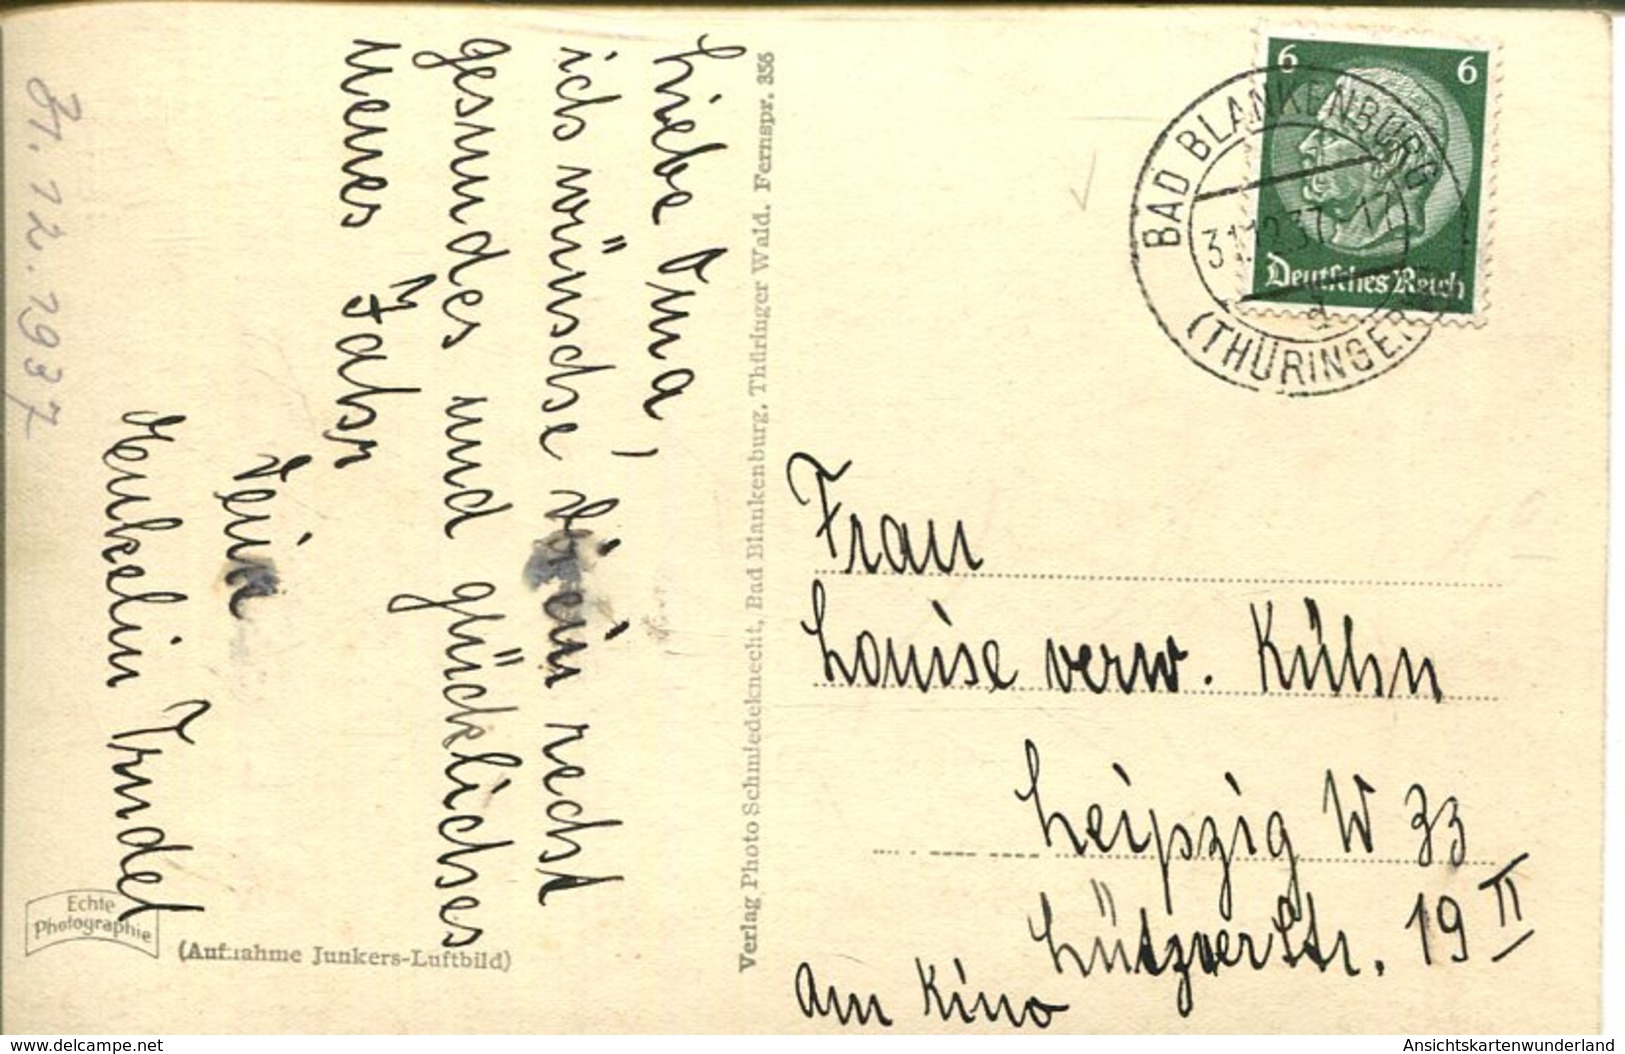 31.12.1937
Liebe Oma,
ich wünsche Dir ein recht
gesundes und glückliches
neues Jahr
Dein
Enkelin Trudel
Echte
Photographie
(Aufnahme Junkers-Luftbild)
Verlag Photo Schmiedeknecht, Bad Blankenburg, Thüringer Wald. Fernspr. 356
6 6
Deutsches Reich
BAD BLANKENBURG
31.12.37.-17
d
(THÜRINGER
Frau
Louise verw. Kühn
Leipzig W 33
Lütznerstr. 19 II
am Kino
www.delcampe.net
Ansichtskartenwunderland